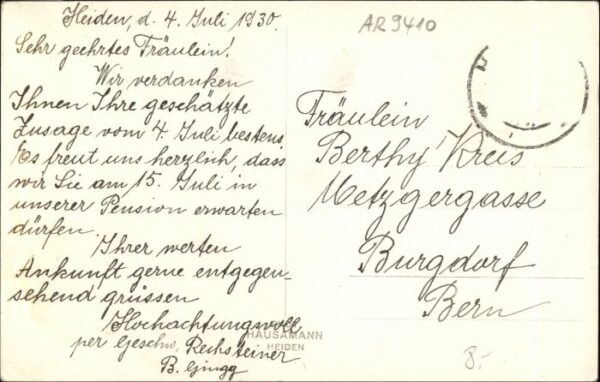 Heiden, d. 4. Juli 1930.
Sehr geehrtes Fräulein!
Wir verdanken
Ihnen Ihre geschätzte
Zusage vom 4. Juli bestens.
Es freut uns herzlich, dass
wir Sie am 15. Juli in
unserer Pension erwarten
dürfen.
Ihrer werten
Ankunft gerne entgegen-
sehend grüssen
Hochachtungsvoll
per Geschw. Rechsteiner
B.
HAUSAMANN
HEIDEN
AR9410
Fräulein
Berthy Kreis
Metzgergasse
Burgdorf
Bern
8.-